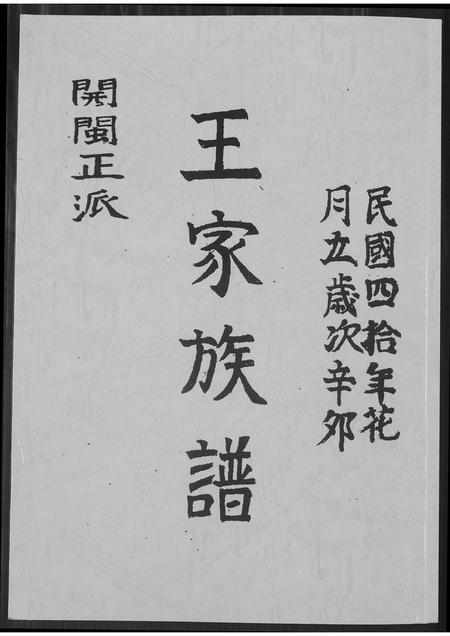 民國四拾年花
月五歲次辛夘
王家族譜
開閩正派